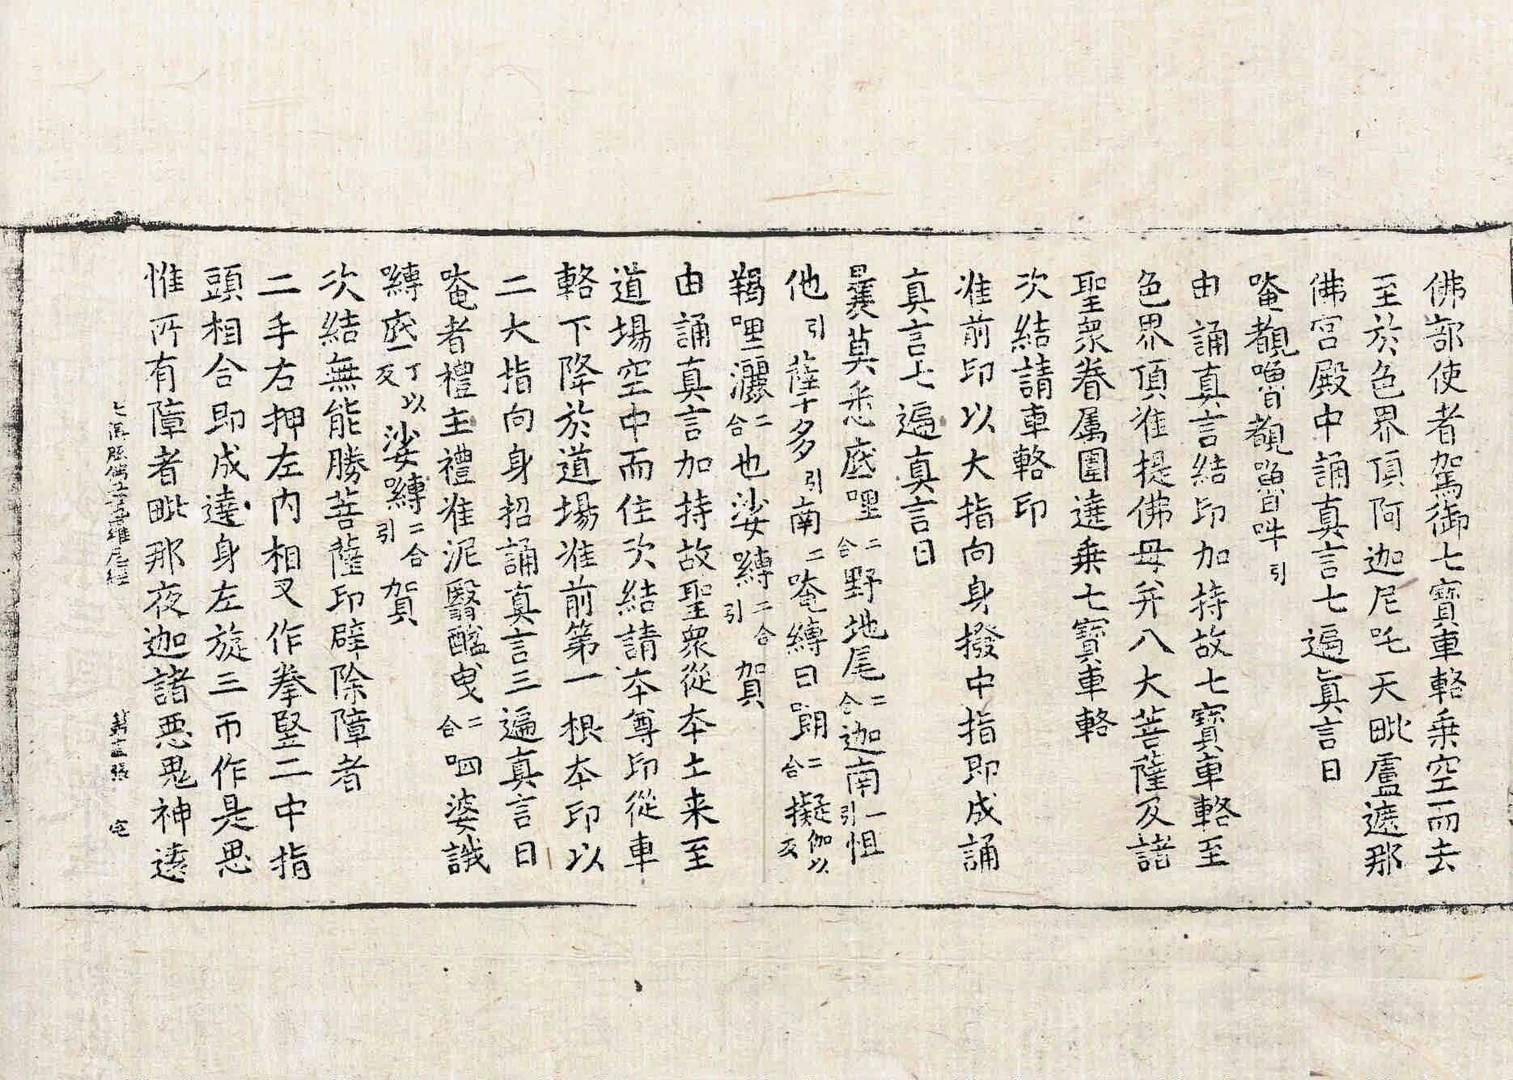 佛部使者駕御七寶車輅乗空而去
至於色界頂阿迦尼吒天毗盧遮那
佛宮殿中誦真言七遍真言曰
唵覩嚕覩嚕吽引
由誦真言結印加持故七寶車輅至
色界頂准提佛母并八大菩薩及諸
聖衆眷属圍遶乗七寶車輅
次結請車輅印
准前印以大指向身撥中指即成誦
真言七遍真言曰
曩莫悉底哩二合野地尾二合迦南一引怛
他引蘖多引南二唵縛曰囉二合擬伽以反
羯哩灑二合也娑縛二合引賀
由誦真言加持故聖衆從本土来至
道場空中而住次結請本尊印從車
輅下降於道場准前第一根本印以
二大指向身招誦真言三遍真言曰
唵者禮主禮准泥翳醯曳二合呬婆誐
縛底一丁以反娑嚩二合引賀
次結無能勝菩薩印辟除障者
二手右押左内相叉作拳竪二中指
頭相合即成遶身左旋三帀作是思
惟所有障者毗那夜迦諸惡鬼神遠
七俱胝佛母陁羅尼經 第十二張 宅